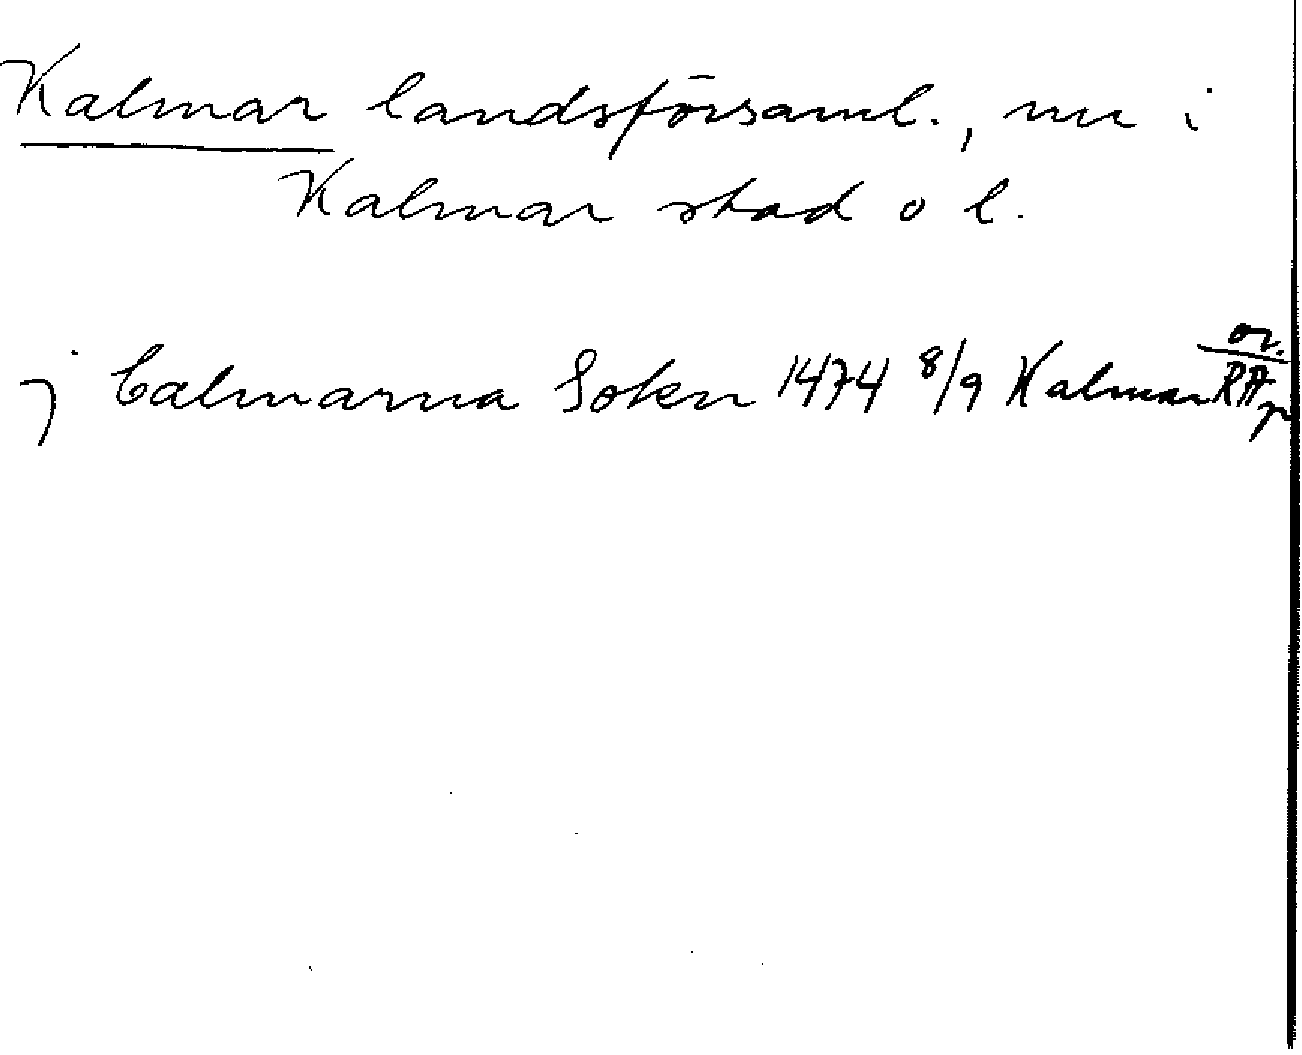 Kalmar landsförsaml., nu i
Kalmar stad o l.
j Calmarna Sokn 1474 8/9 Kalmar or. RA p